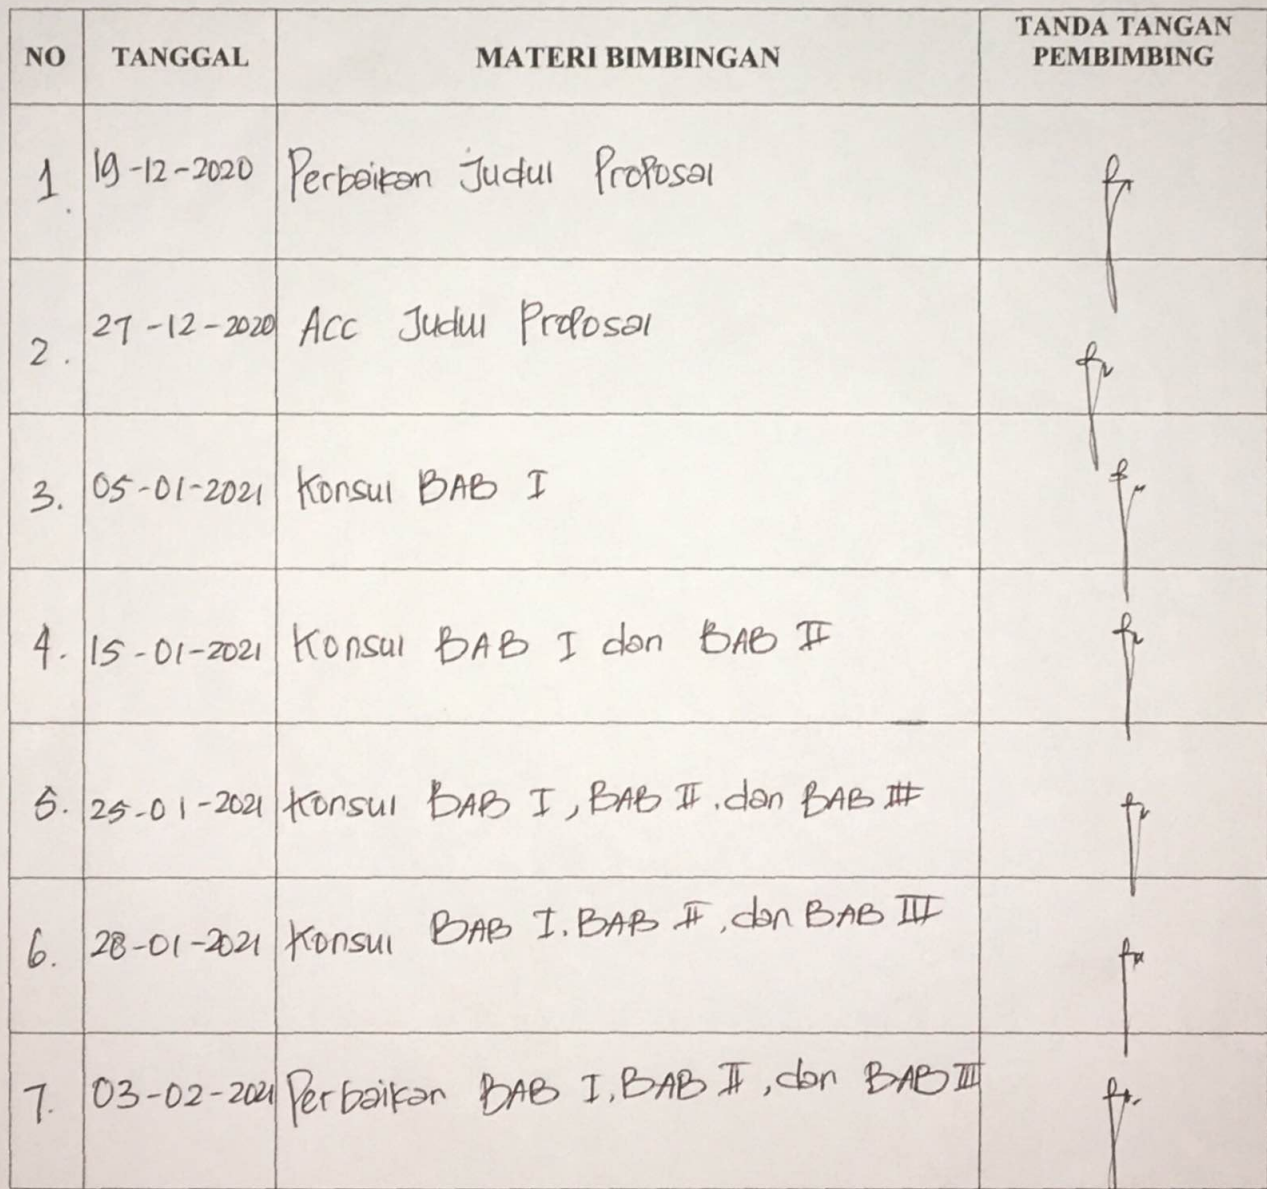 NO TANGGAL MATERI BIMBINGAN TANDA TANGAN PEMBIMBING
1. 19-12-2020 Perbaikan Judul Proposal
2. 27-12-2020 Acc Judul Proposal
3. 05-01-2021 Konsul BAB I
4. 15-01-2021 Konsul BAB I dan BAB II
5. 25-01-2021 Konsul BAB I, BAB II, dan BAB III
6. 28-01-2021 Konsul BAB I, BAB II, dan BAB III
7. 03-02-2021 Perbaikan BAB I, BAB II, dan BAB III